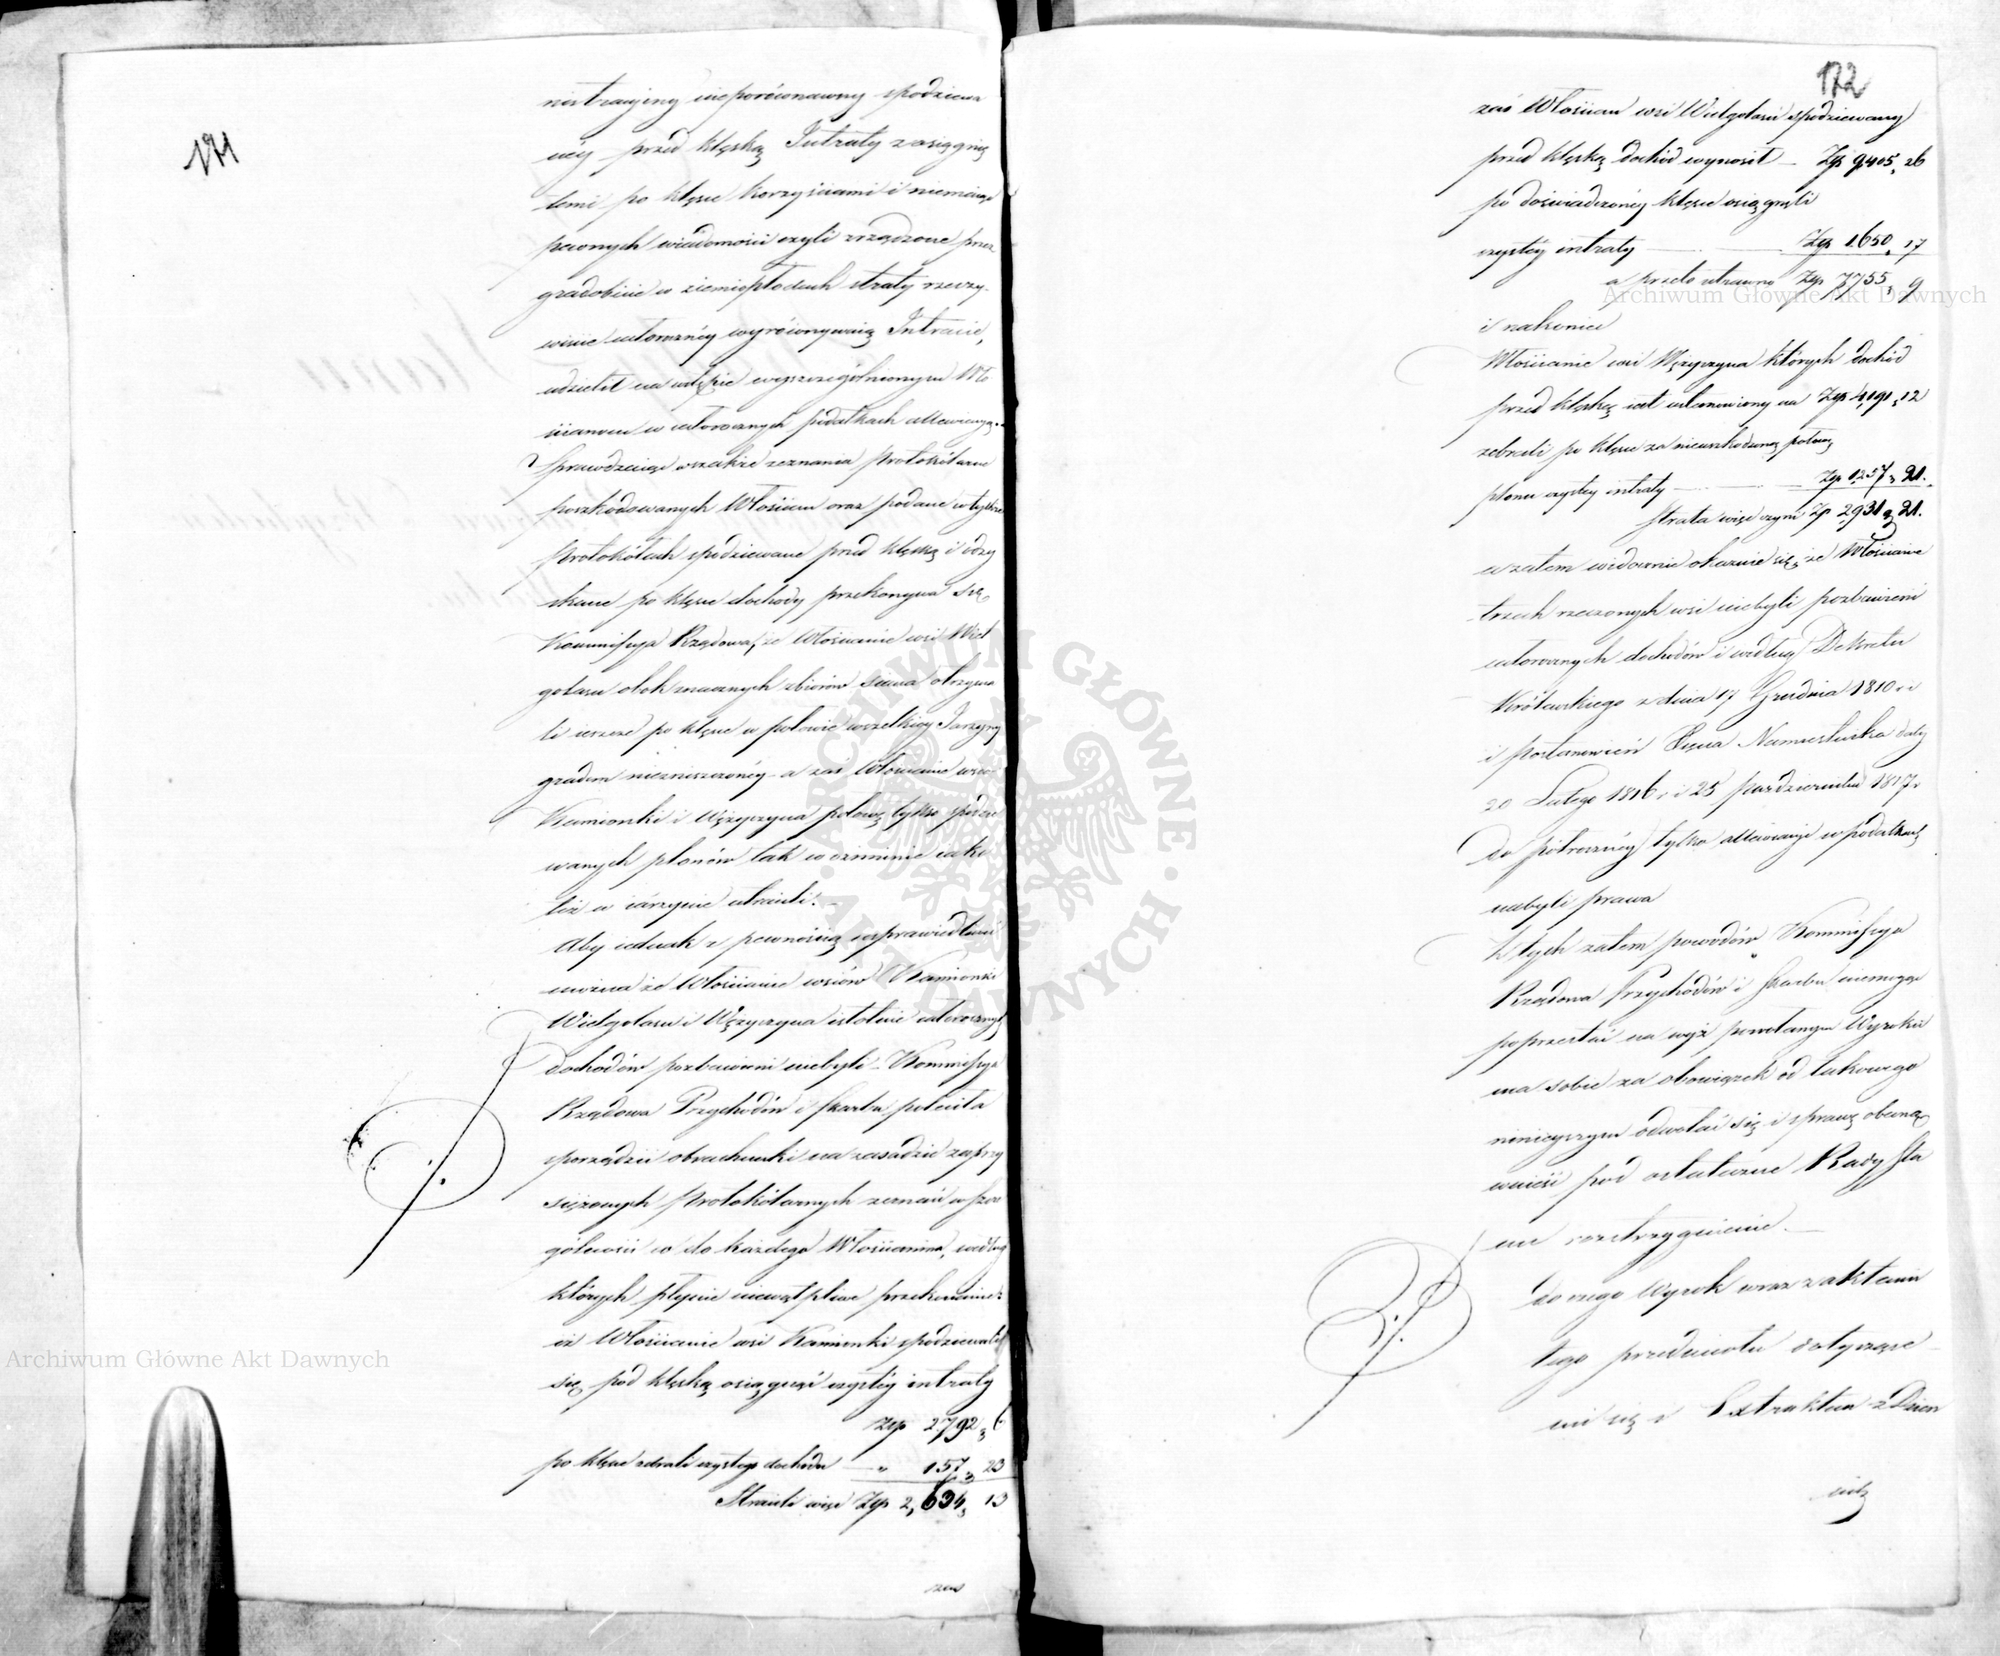 171
nistracyiney nieporównawszy spodziewa
ney przed klęską Intraty z osiągnię
temi po klęsce korzyściami i niemaiąc
pewnych wiadomości czyli zrządzone przez
gradobicie w ziemiopłodach straty rzeczy-
wiście całorocznéy wyrównywaią Intracie,
udzielił na wstępie wyszczególnionym Wło
ścianom w całorocznych podatkach allewiacyą.
Sprawdzaiąc wszakże zeznania protokólarne
poszkodowanych Włościan oraz podane w tychże
Protokółach spodziewane przed klęską i odzy
skane po klęsce dochody przekonywa się
Kommissya Rządowa, że Włościanie wsi Wiel
golasu obok znacznych zbiorów siana otrzyma
li ieszcze po klęsce w połowie wszelkiey Jarzyny
gradem niezniszczonéy a zaś Włościanie wsiów
Kamionki i Wężyczyna połowę tylko spodzie
wanych plonów tak w oziminie iako
też w iarzynie utracili. —
Aby iednak z pewnością usprawiedliwić
można że Włościanie wsiów Kamionki
Wielgolasu i Wężyczyna istotnie całorocznych
dochodów pozbawieni niebyli - Kommissya
Rządowa Przychodów i Skarbu poleciła
sporządzić obrachunki na zasadzie zaprzy
siężonych Protokólarnych zeznań w szcze
gólności co do każdego Włościanina, według
których płynie niewątpliwe przekonanie:
iż Włościanie wsi Kamionki spodziewali
się pod klęską osiągnąć czystéy intraty
Złp 2792, 6
po klęsce zebrali czystego dochodu — „ 157, 23
Stracili więc Złp 2,634, 13
zaś
172
zaś Włościan wsi Wielgolasu spodziewany
przed klęską dochód wynosił — Złp 9405, 26
po doświadczonéy klęsce osiągnęli
czystéy intraty — — Złp 1650, 17
a przeto utracono Złp 7755, 9
i nakoniec
Włościanie wsi Wężyczyna których dochód
przed klęską iest ustanowiony na Złp 4,191, 12
zebrali po klęsce za nieuszkodzoną połowę
plonu czystéy intraty — — Złp 1257, 21.
Strata więc czyni Złp 2931, 21.
a zatem widocznie okazuie się, że Włościanie
trzech rzeczonych wsi niebyli pozbawieni
całorocznych dochodów i według Dekretu
Królewskiego z dnia 17 Grudnia 1810 r. i
i postanowień Xięcia Namiestnika daty
20 Lutego 1816 r. i 25 Października 1817 r.
do półrocznéy tylko allewiacyi w podatkach
nabyli prawa
Z tych zatem powodów Kommissya
Rządowa Przychodów i Skarbu niemogąc
poprzestać na wyż powołanym Wyroku
ma sobie za obowiązek od takowego
niniejszym odwołać się i sprawę obecną
wnieść pod ostateczne Rady Sta
nu rozstrzygnienie. —
do czego Wyrok wraz z aktami
tego przedmiotu dotyczące
mi się i Extraktem z Dzien
Archiwum Główne Akt Dawnych
Archiwum Główne Akt Dawnych
ARCHIWUM GŁÓWNE · AKT DAWNYCH ·